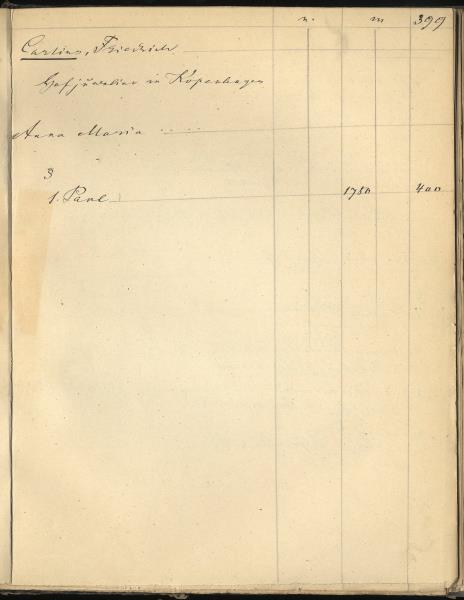 n. m 399
Carlins, Friedrich
Hofjuvelier in Kopenhagen
Anna Maria .....
3
1. Paul 1780 400